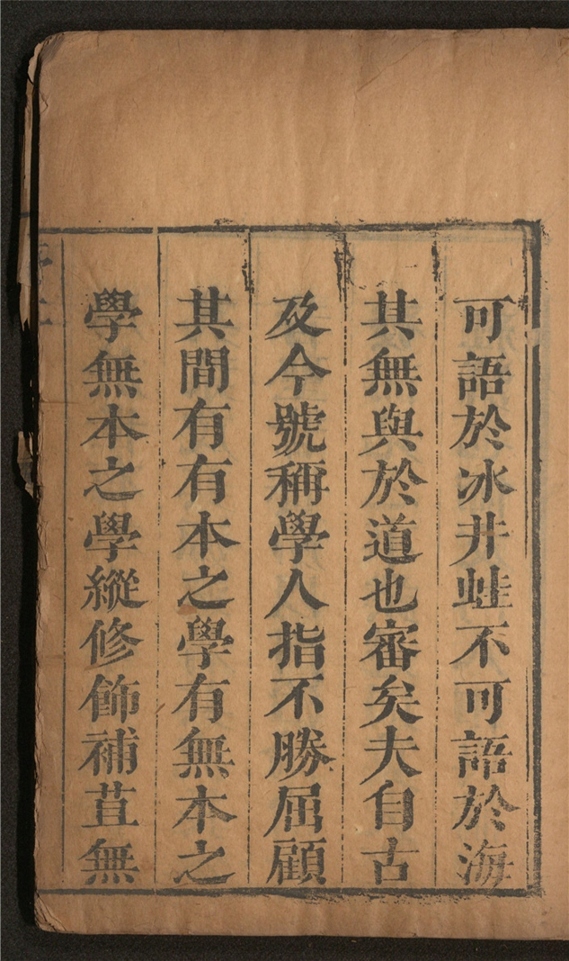 可語於冰井蛙不可語於海
其無與於道也審矣夫自古
及今號稱學人指不勝屈顧
其間有有本之學有無本之
學無本之學縱修飾補苴無